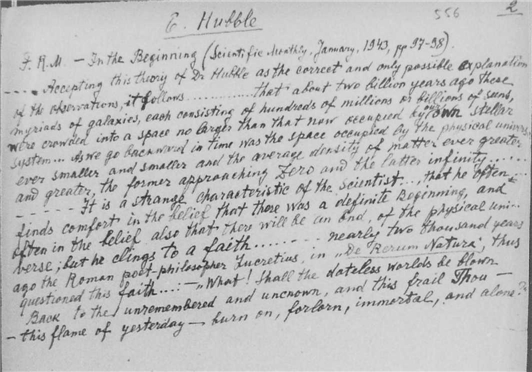 E. Hubble
556
2
F. R. M. — In the Beginning (Scientific Monthly, January, 1943, pp 97-98).
.... Accepting this theory of Dr Hubble as the correct and only possible explanation
of the observations, it follows .......... that about two billion years ago these
myriads of galaxies, each consisting of hundreds of millions or billions of suns,
were crowded into a space no larger than that now occupied by our own stellar
system... As we go backward in time was the space occupied by the physical univers
ever smaller and smaller and the average density of matter ever greater
and greater, the former approaching Zero and the latter infinity.....
..... It is a strange characteristic of the scientist..., that he often...
finds comfort in the belief that there was a definite Beginning, and
often in the belief also that there will be an End, of the physical uni-
verse; but he clings to a faith........ nearly two thousand years
ago the Roman poet-philosopher Lucretius, in "De Rerum Natura", thus
questioned this faith...:— "What! Shall the dateless worlds be blown
Back to the unremembered and uncnown, and this frail Thou —
— this flame of yesterday — burn on, forlorn, immortal, and alone?"